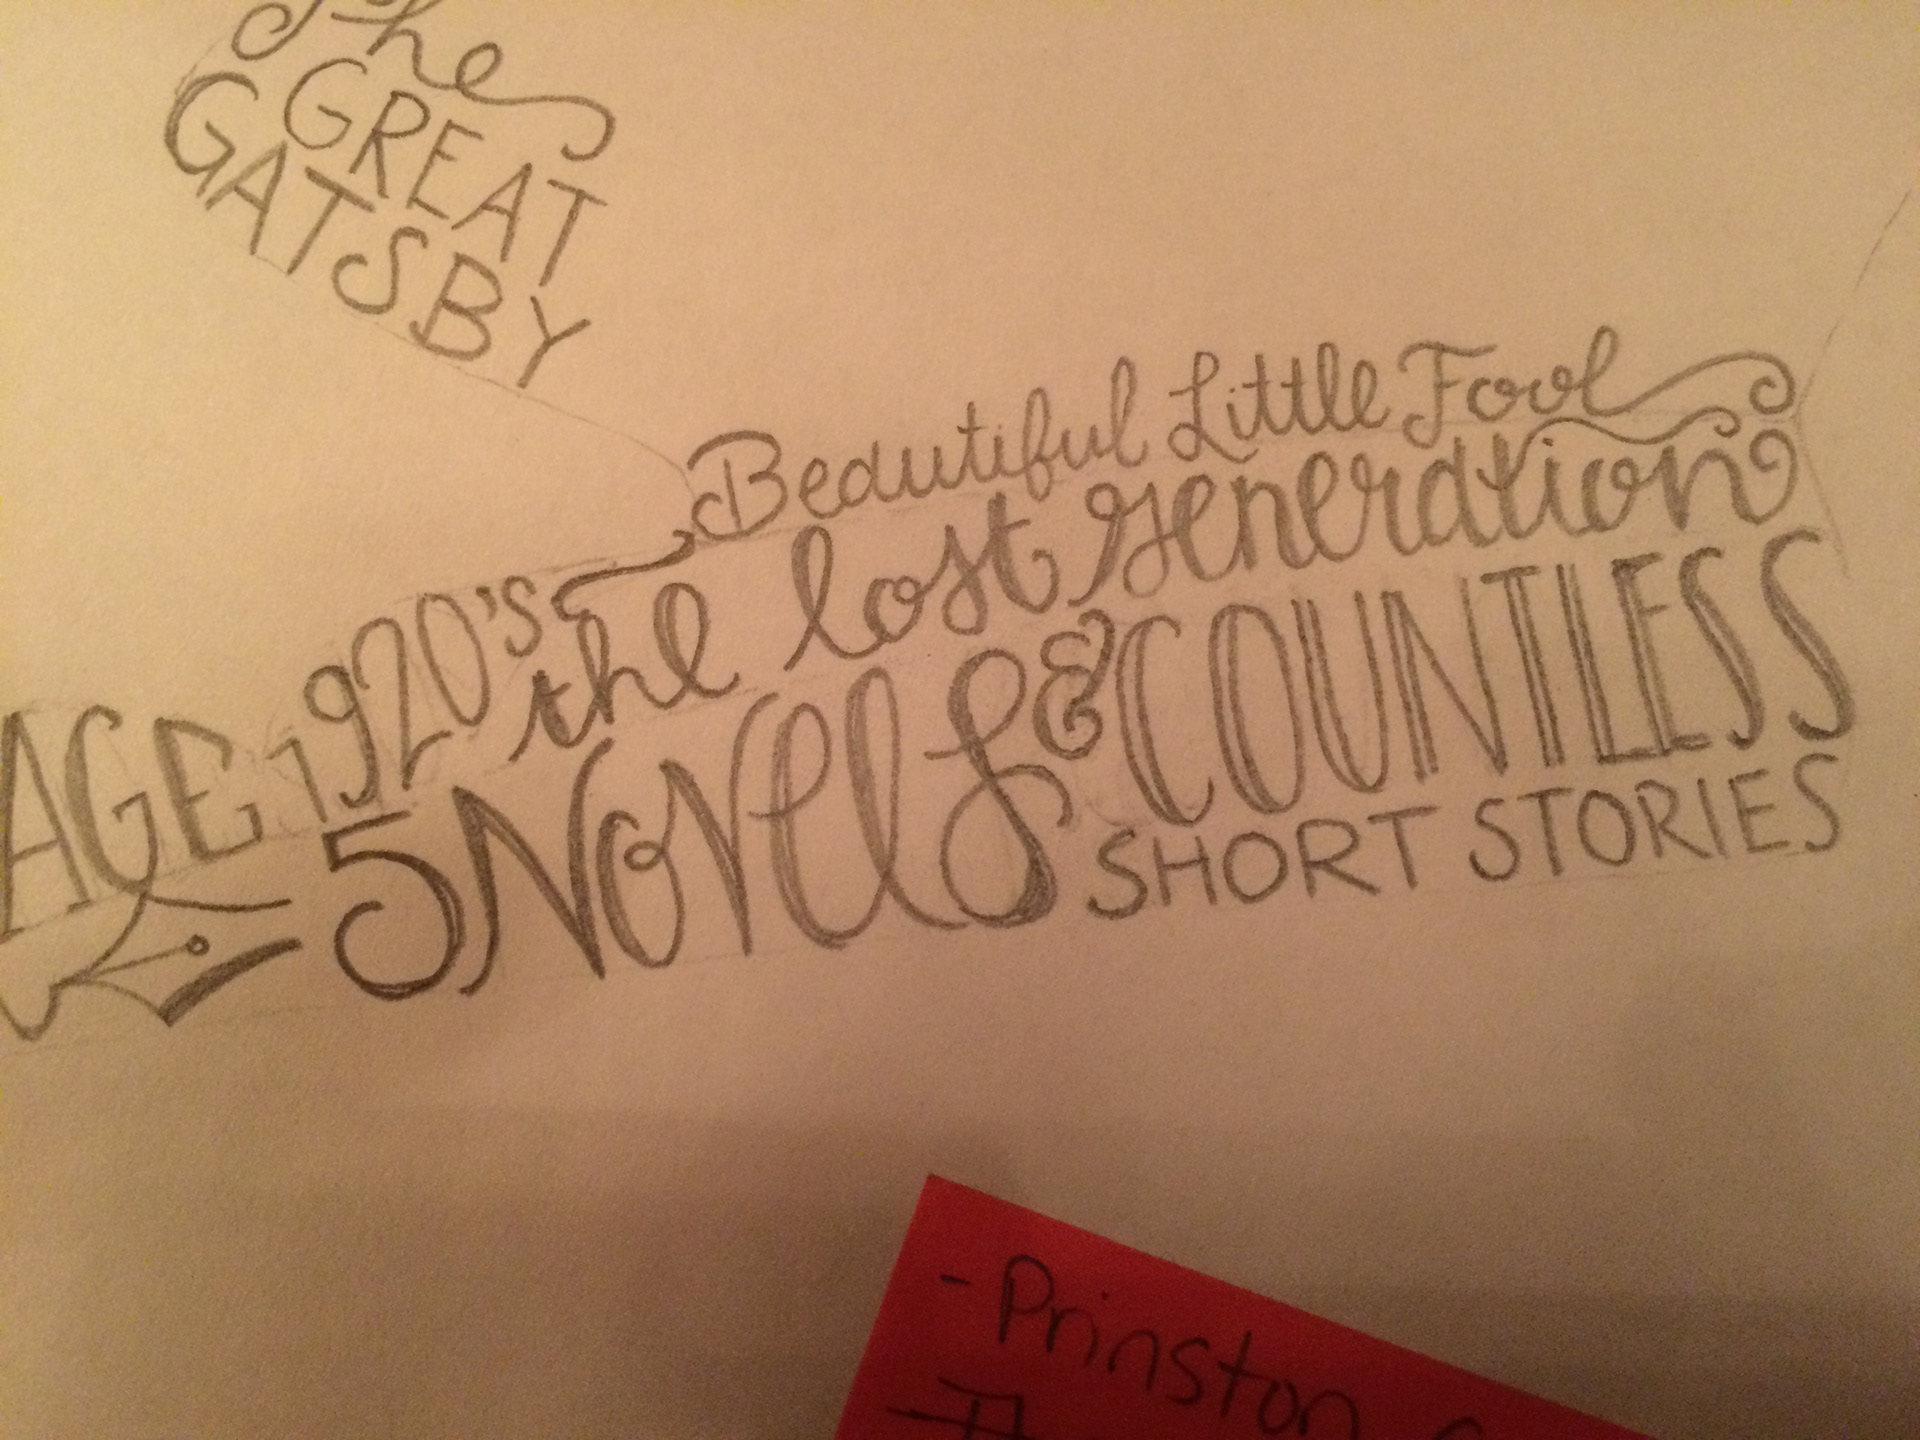 The
GREAT
GATSBY
Beautiful Little Fool
AGE 1920's the lost generation
5 Novels & COUNTLESS
SHORT STORIES
- Prinston